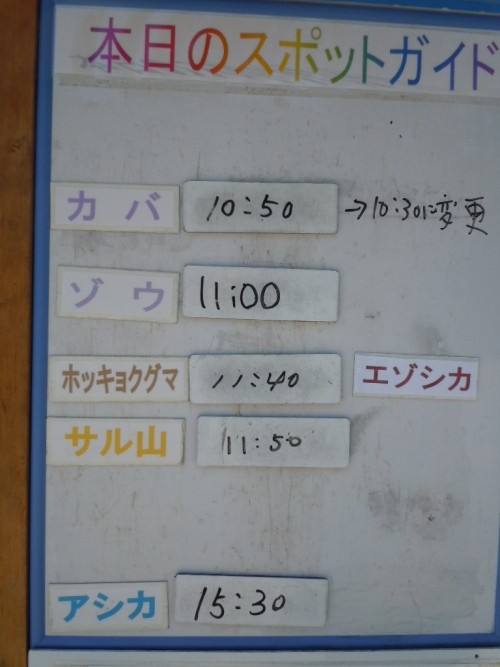 本日のスポットガイド
カバ 10:50 →10:30に変更
ゾウ 11:00
ホッキョクグマ 11:40 エゾシカ
サル山 11:50
アシカ 15:30